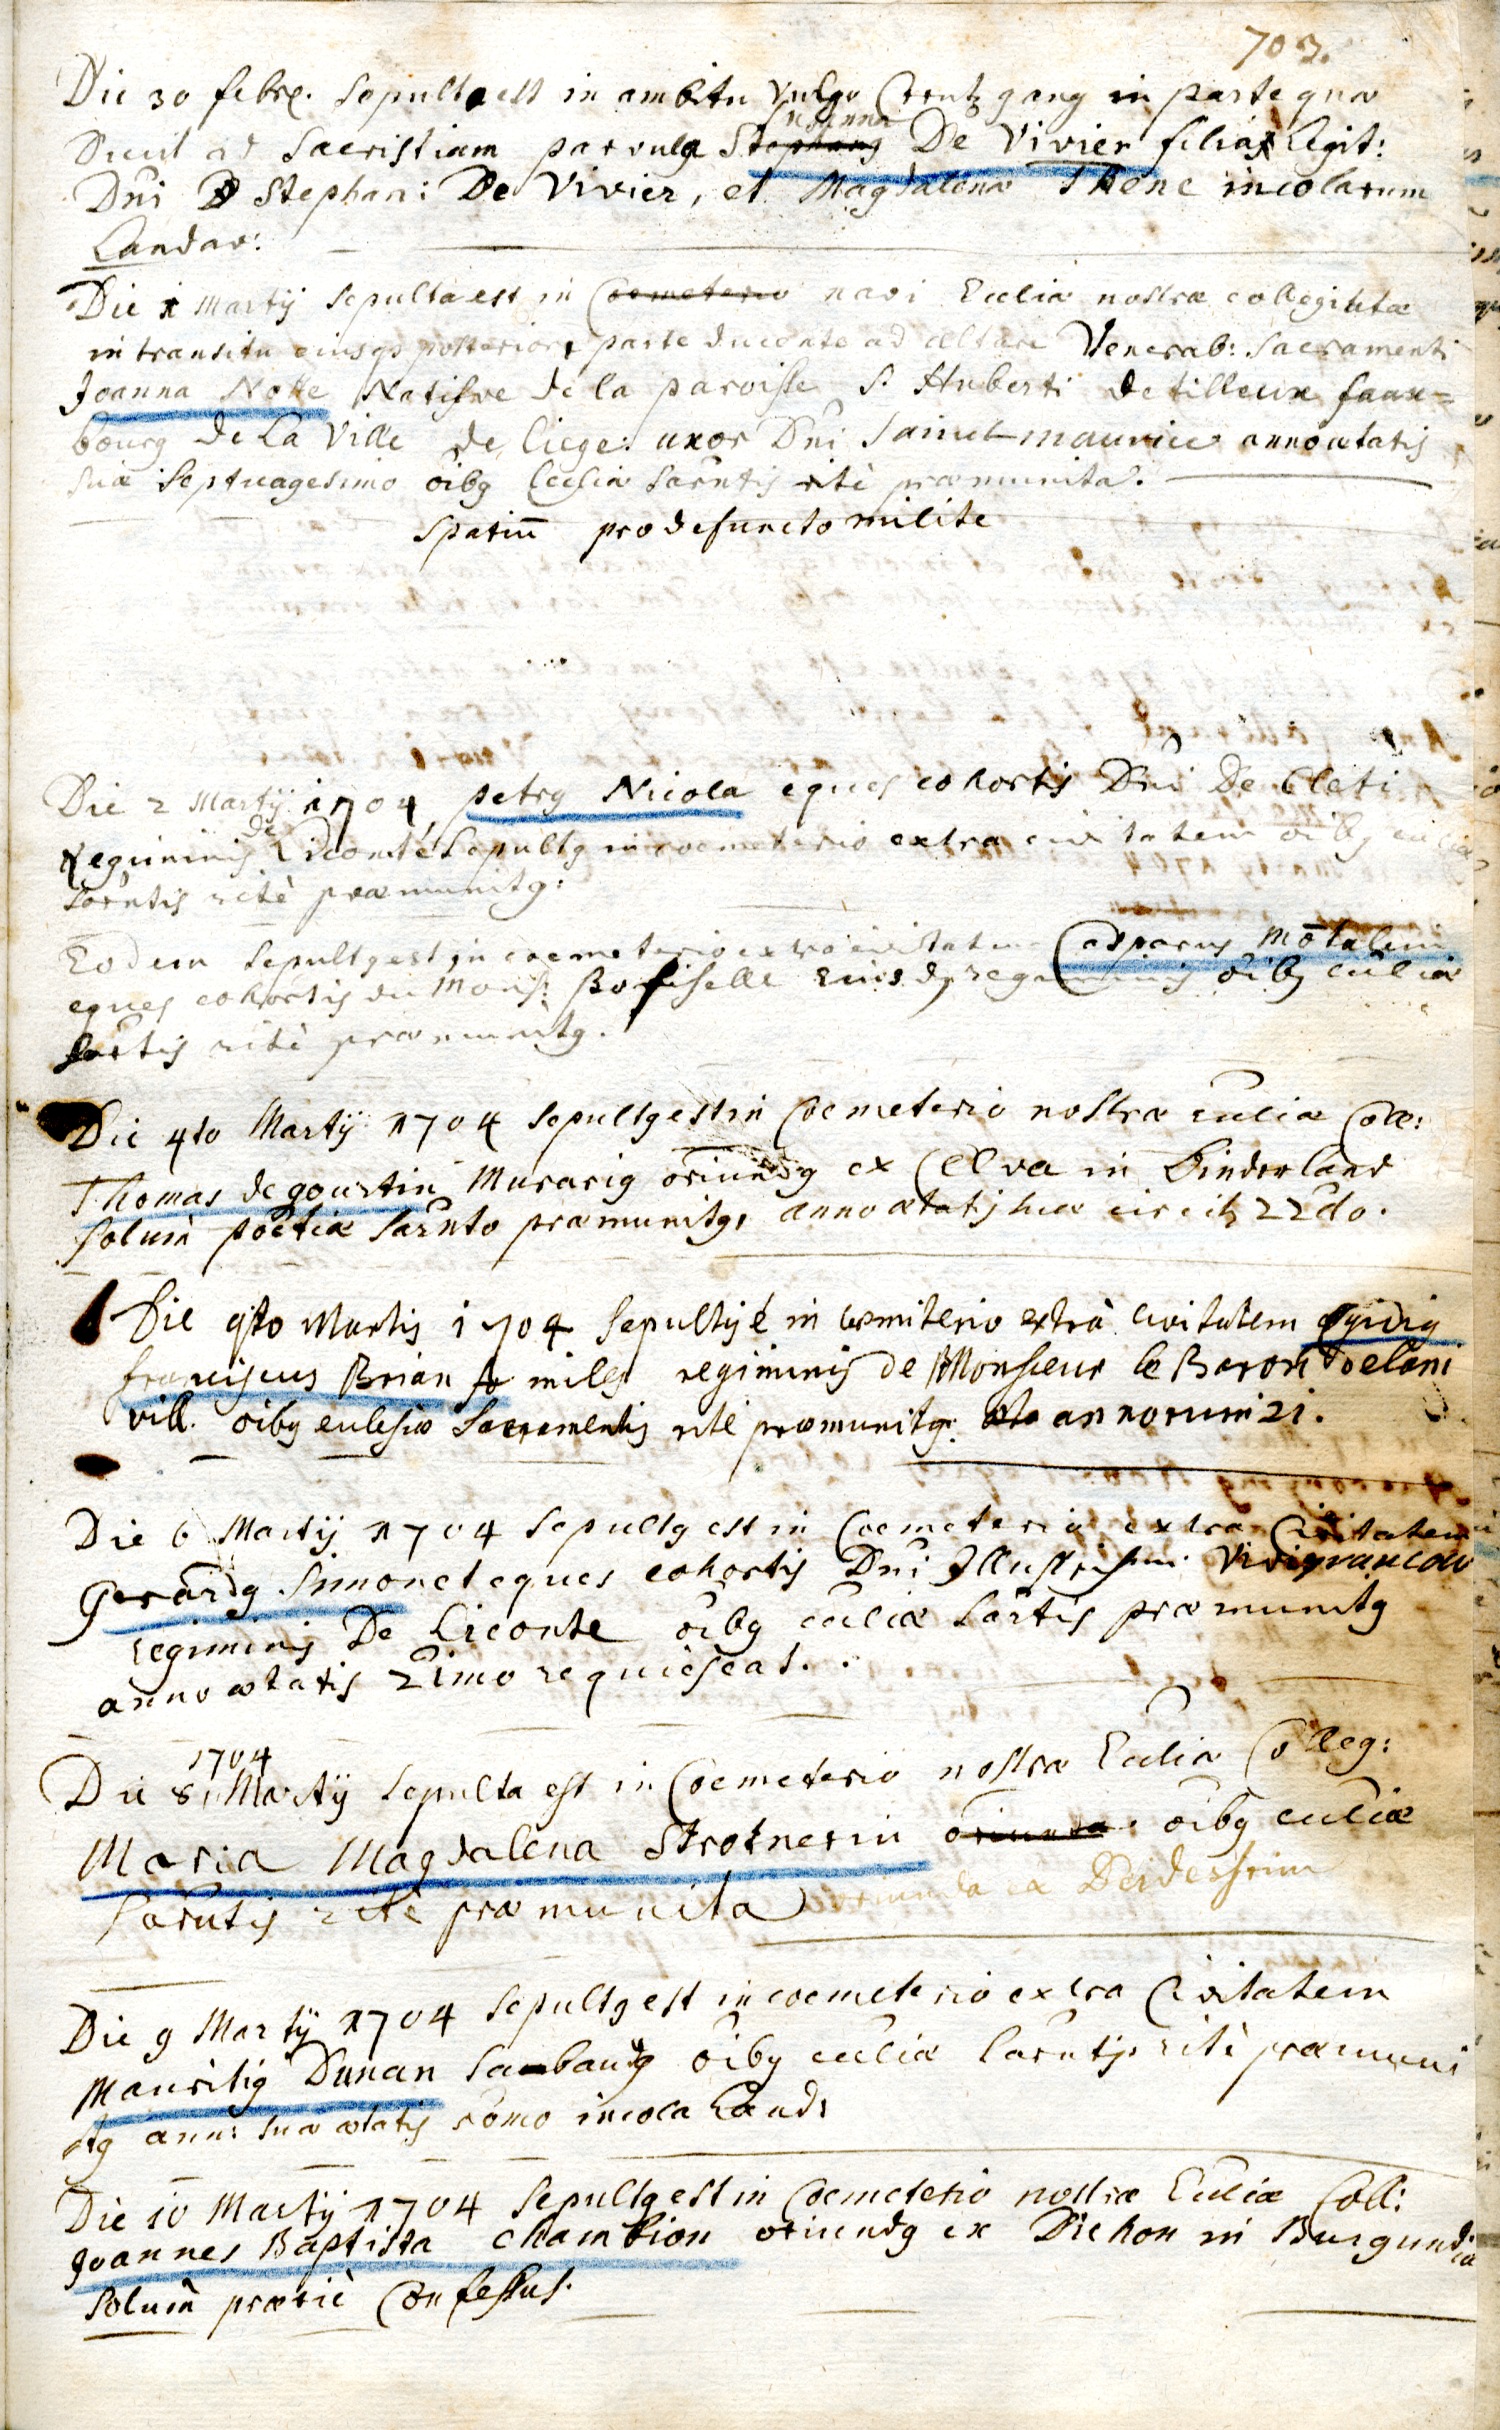 703.
Die 30 febr. Sepulta est in ambitu vulgo Creutzgang in parte qua
Susanna
Ducit ad Sacristiam parvula Stephang De Vivier filia legit:
Dni D Stephani De Vivier, et Magdalena Thene incolarum
Landav:
Die 1 Martij Sepulta est in Coemeterio navi Eccliæ nostræ collegiatæ
in transitu eiusq posteriori parte ducente ad altare Venerab: Sacramenti
Joanna Notte Natifve de la paroisse S. Huberti de tilleux faux=
bourg de La Ville de Liege: uxor Dni Sainct maurice anno ætatis
suæ Septuagesimo oibg Eccliæ Sacntis ritè præmunita.
Spatiū pro defuncto milite
Die 2 Martij 1704 petrg Nicola eques cohortis Dni De Cleti
regiminis de Liconté Sepultg in coemeterio extra civitatem oibg eccliæ
Sacntis ritè præmunitg:
Eodem Sepultg est in coemeterio extra civitatem Casparus Mōtalem
eques cohortis du Mons: Boffiselle eiusdg regiminis oibg eccliæ
Sactis ritè præmunitg.
Die 4to Martij 1704 Sepultg est in Coemeterio nostræ eccliæ Coll:
Thomas degourtin Murarig oriundg ex Celva in Linderland
Solum pœtiæ Sacnto præmunitg, anno ætatis suæ circit 22do.
Die 4to Martis 1704 Sepultg é in cœmiterio extrà civitatem Egidig
franciscus Brian miles regiminis de Monsieur le Baron delani
vill. oibg eclesiæ Sacramentis ritè præmunitg: annorum 21.
Die 6 Martij 1704 Sepultg est in Coemeterio extra Civitatem
Gerardg Simonet eques cohortis Dni Illustrissimi
regiminis De Liconte oibg eccliæ Sactis præmunitg
anno ætatis 21mo requiescat.
1704
Die 8 Martij Sepulta est in Coemeterio nostræ Eccliæ Colleg:
Maria Magdalena Strotnerin oriunda oibg eccliæ
Sacntis ritè præmunita oriunda ex Deidesheim
Die 9 Martij 1704 Sepultg est in coemeterio extra Civitatem
Mauritig Dunan Sabaudg oibg eccliæ Sacntis ritè præmuni
tg ann: suæ ætatis incola Land:
Die 10 Martij 1704 Sepultg est in Coemeterio nostræ Eccliæ Coll:
Joannes Baptista Chambion oriundg ex Diehon in Burgundia
Solum præviè Confessus.